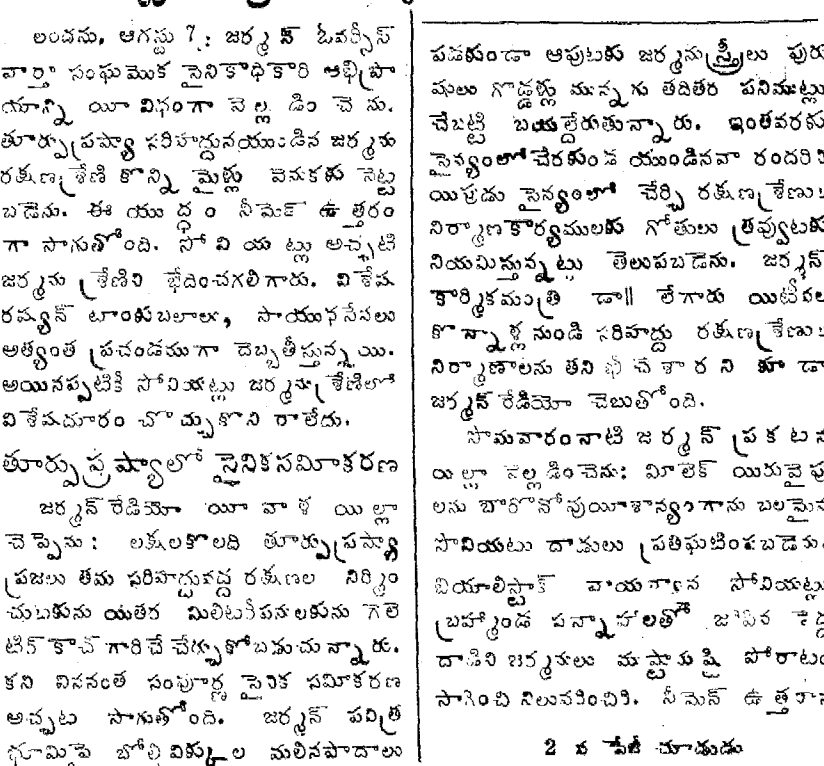 లండను, ఆగస్టు 7: జర్మన్ ఓవర్సీస్
వార్తా సంఘమొక సైనికాధికారి అభిప్రా
యాన్ని యీ విధంగా వెల్లడించెను.
తూర్పుప్రష్యా సరిహద్దునయుండిన జర్మను
రక్షణశ్రేణి కొన్ని మైళ్లు వెనుకకు నెట్ట
బడెను. ఈ యుద్ధం నీమెన్ ఉత్తరం
గా సాగుతోంది. సోవియట్లు అచ్చటి
జర్మను శ్రేణిని భేదించగలిగారు. విశేష
రష్యన్ టాంకుబలాలు, సాయుధసేనలు
అత్యంత ప్రచండముగా దెబ్బతీస్తున్నయి.
అయినప్పటికీ సోవియట్లు జర్మను శ్రేణిలో
విశేషదూరం చొచ్చుకొని రాలేదు.
తూర్పుప్రష్యాలో సైనికసమీకరణ
జర్మన్ రేడియో యీవాళ యిల్లా
చెప్పెను: లక్షలకొలది తూర్పుప్రష్యా
ప్రజలు తమ సరిహద్దువద్ద రక్షణల నిర్మిం
చుటకును యితర మిలిటరీపనులకును గౌలె
టిర్ కాచ్ గారిచే చేర్చుకోబడుచున్నారు.
కని విననంత సంపూర్ణ సైనిక సమీకరణ
అచ్చట సాగుతోంది. జర్మన్ పవిత్ర
భూమిపై బోల్షివిక్కుల మలినపాదాలు
పడకుండా ఆపుటకు జర్మనుస్త్రీలు పురు
షులు గొడ్డళ్లు మున్నగు తదితర పనిముట్లు
చేబట్టి బయల్దేరుతున్నారు. ఇంతవరకు
సైన్యంలో చేరకుండ యుండినవా రందరిని
యిపుడు సైన్యంలో చేర్చి రక్షణశ్రేణుల
నిర్మాణకార్యములకు గోతులు త్రవ్వుటకు
నియమిస్తున్నట్లు తెలుపబడెను. జర్మన్
కార్మికమంత్రి డా॥ లేగారు యిటీవల
కొన్నాళ్లనుండి సరిహద్దు రక్షణశ్రేణుల
నిర్మాణాలను తనిఖీ చేశారని కూడా
జర్మన్ రేడియో చెబుతోంది.
సోమవారంనాటి జర్మన్ ప్రకటన
యిల్లా వెల్లడించెను: మీలెక్ యిరువైపు
లను బారొనోవుయీశాన్యంగాను బలమైన
సోవియటు దాడులు ప్రతిఘటింపబడెను.
బియాలిస్టాక్ వాయవ్యాన సోవియట్లు
బ్రహ్మాండ పన్నాహాలతో జరిపిన పెద్ద
దాడిని జర్మనులు ముష్టాముష్టి పోరాటం
సాగించి నిలువరించిరి. నీమెన్ ఉత్తరాన
2 వ పేజీ చూడుడు